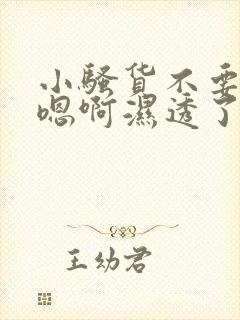 小骚货不要
嗯啊濕透了
王幼君